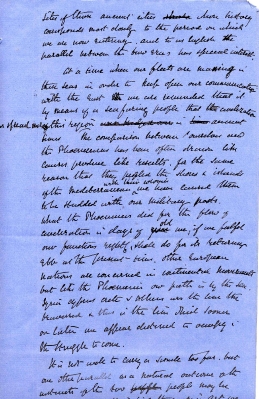 Sites of those ancient cities whose history
corresponds most closely to the period on which
we are now entering. and to us English the
parallel between the two eras has special interest.
At a time when our fleets are massing in
these seas in order to keep open our communication
with the East we are reminded that it is
by means of a seafaring people that the civilization
of this region in ancient
times The comparison between ourselves and
the Phoenicians has been often drawn like
causes produce like results. for the same
reason that they peopled the shores & islands
with their colonies
of the Mediterranean we have caused them
to be studded with our military posts.
What the Phoenicians did for the flow of
civilization in days of old we, if we fulfil
our functions rightly, shall do for its returning
ebb at the present time, other European
nations are concerned in continental movements
but like the Phoenicians our path is by the sea.
Syria Cyprus Crete & others was the line they
traversed & this is the line which sooner
or later we appear destined to occupy in
the struggle to come.
It is not well to carry a simile too far. but
one other parallel as a natural outcome of the
instincts of the two people may be